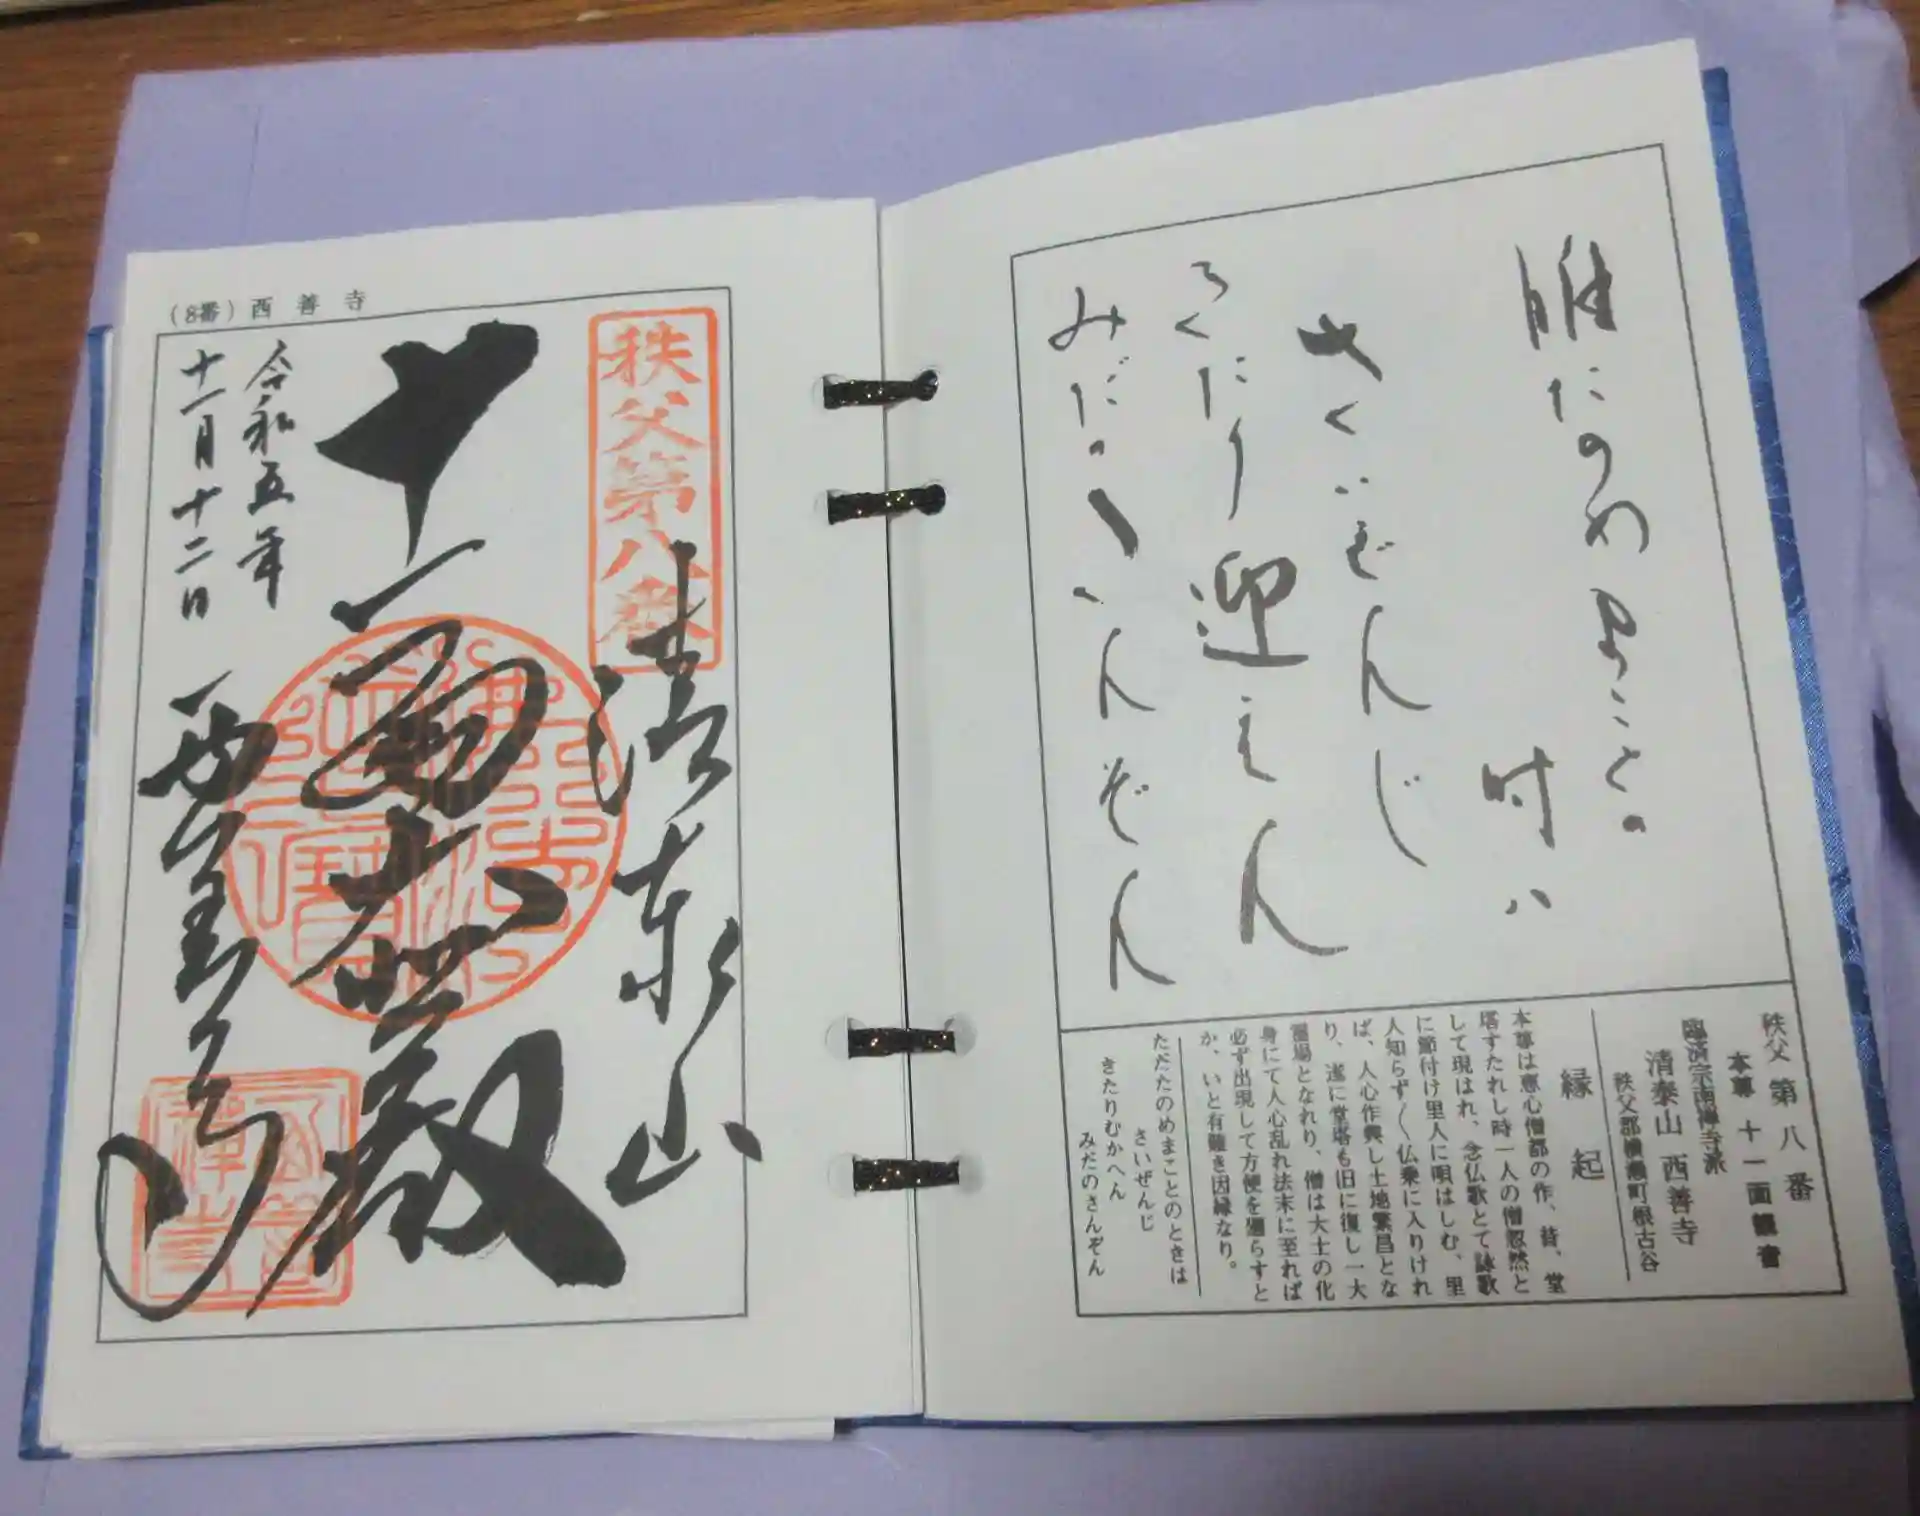 唯たのめまことの
時ハ
さいぜんじ
きたり迎えん
みだのさんぞん
秩父第八番
本尊 十一面観音
臨済宗南禅寺派
清泰山 西善寺
秩父郡横瀬町根古谷
縁起
本尊は恵心僧都の作、昔、堂
塔すたれし時一人の僧忽然と
して現はれ、念仏歌とて詠歌
に節付け里人に唄はしむ、里
人知らず〱仏乗に入りけれ
ば、人心作興し土地繁昌とな
り、遂に堂塔も旧に復し一大
霊場となれり、僧は大士の化
身にて人心乱れ法末に至れば
必ず出現して方便を廻らすと
か、いと有難き因縁なり。
ただたのめまことのときは
さいぜんじ
きたりむかへん
みだのさんぞん
(8番) 西善寺
秩父第八番
清泰山
十一面大悲殿
令和五年
十一月十二日
西善寺